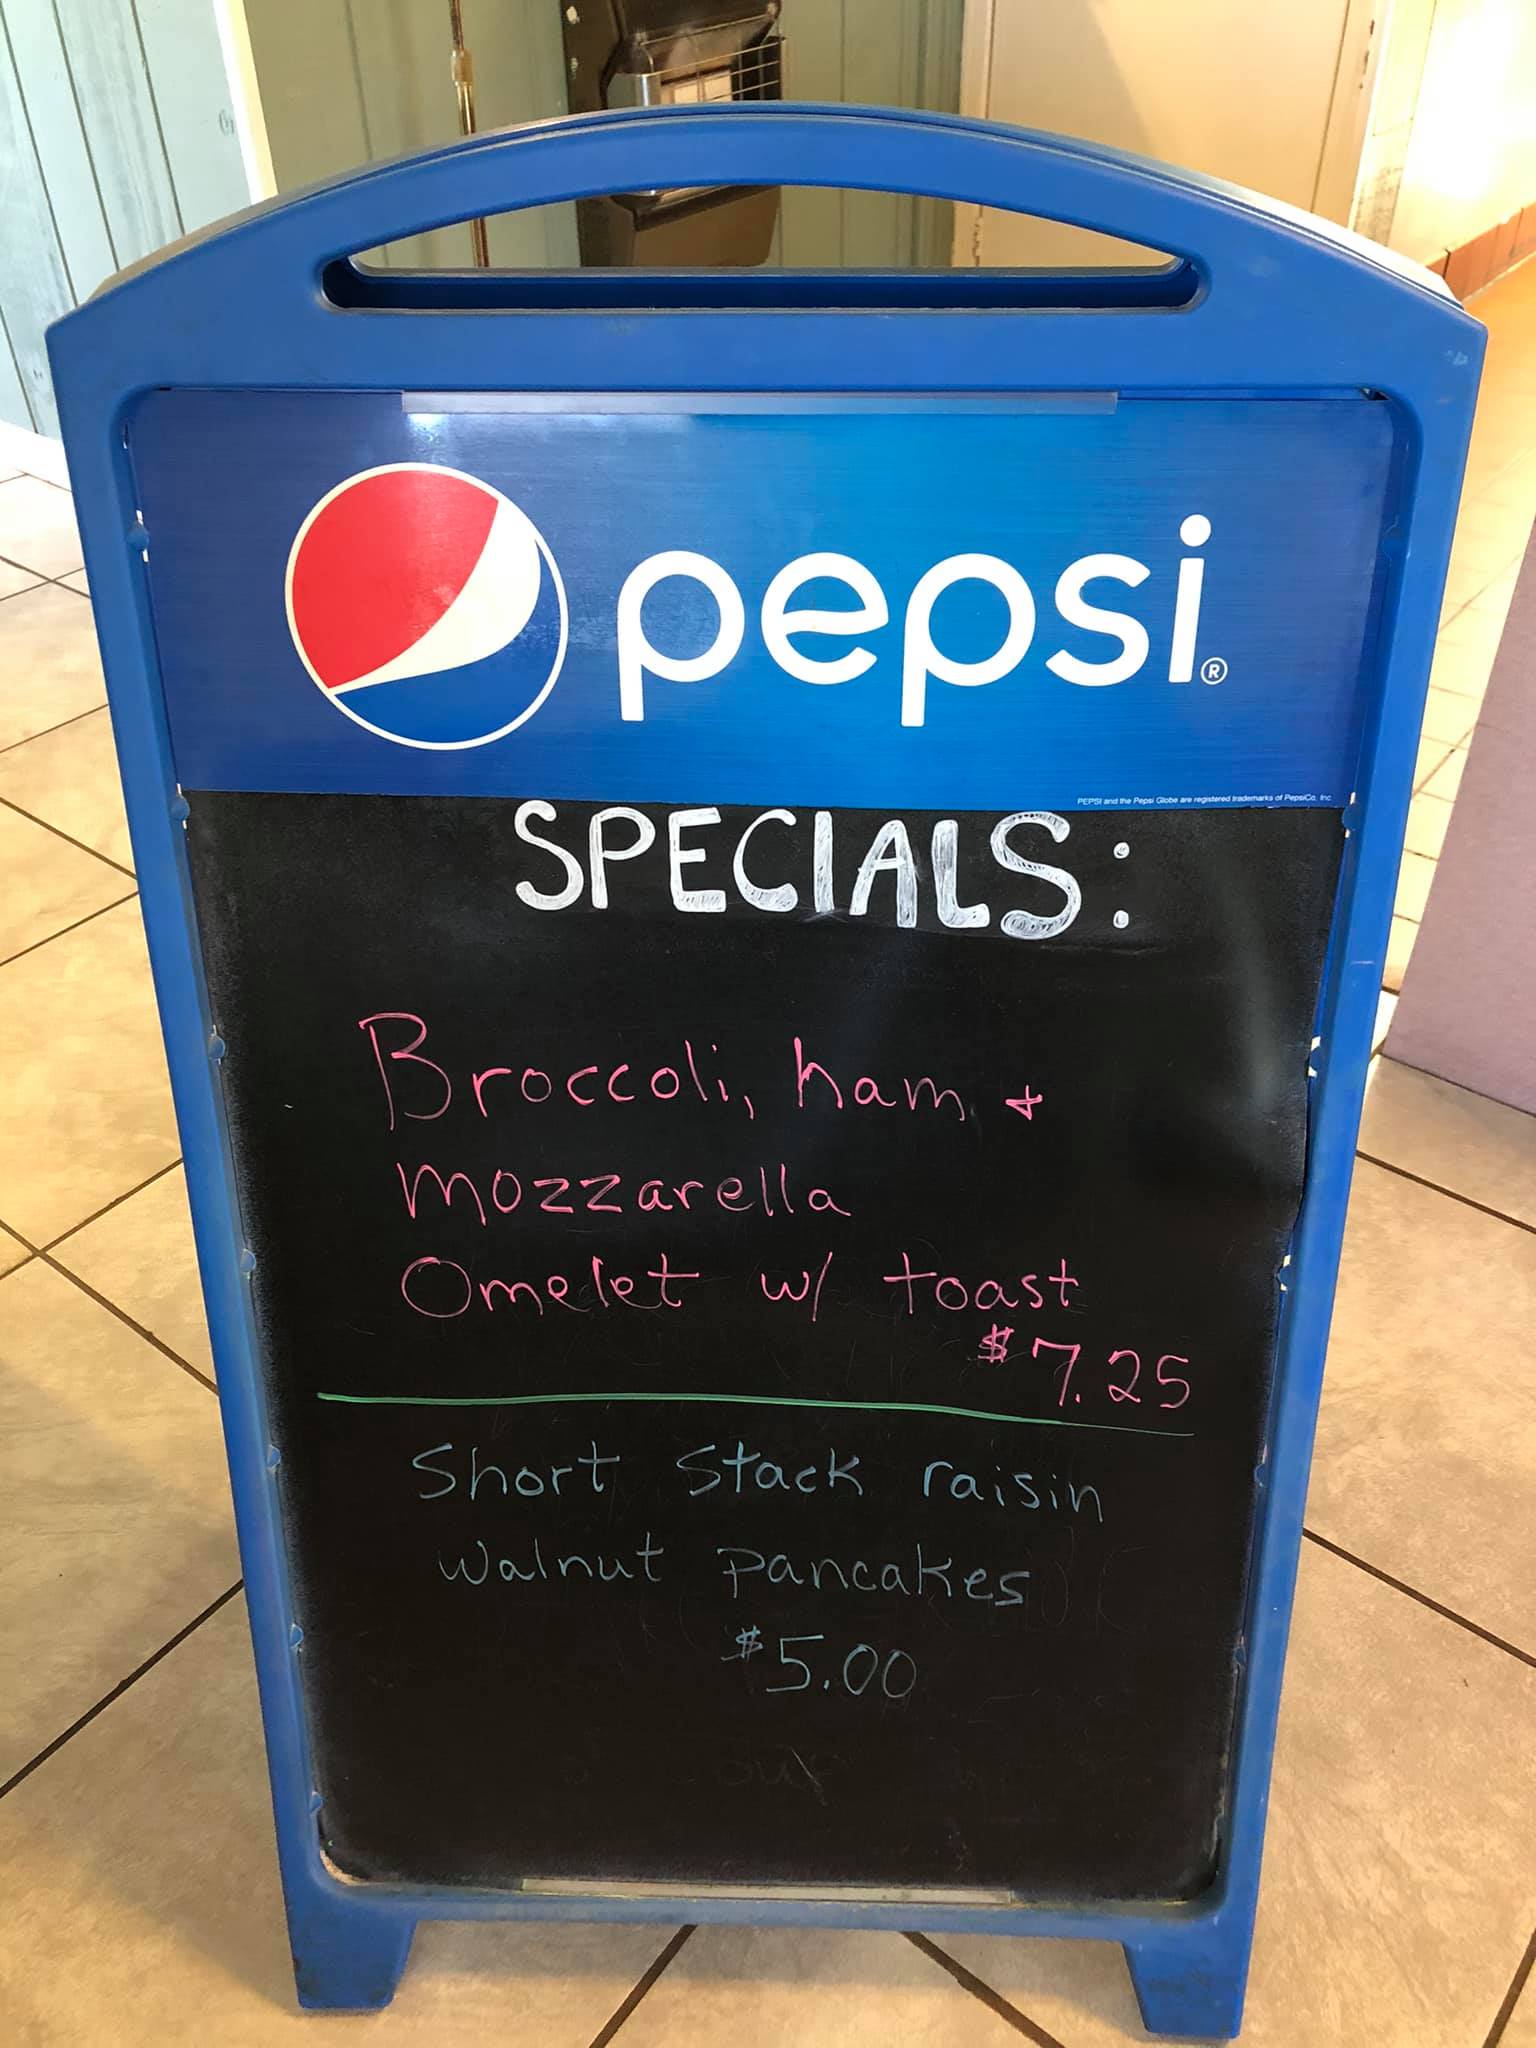 pepsi®
PEPSI and the Pepsi Globe are registered trademarks of PepsiCo, Inc.
SPECIALS:
Broccoli, ham +
mozzarella
Omelet w/ toast
$7.25
Short Stack raisin
walnut pancakes
$5.00